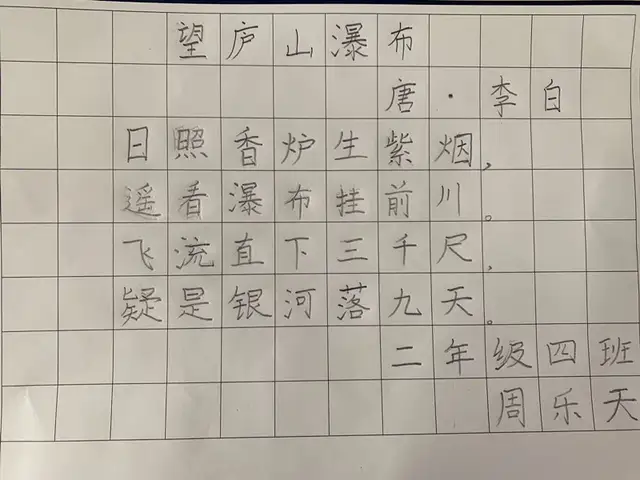 望庐山瀑布
唐·李白
日照香炉生紫烟，
遥看瀑布挂前川。
飞流直下三千尺，
疑是银河落九天。
二年级四班
周乐天